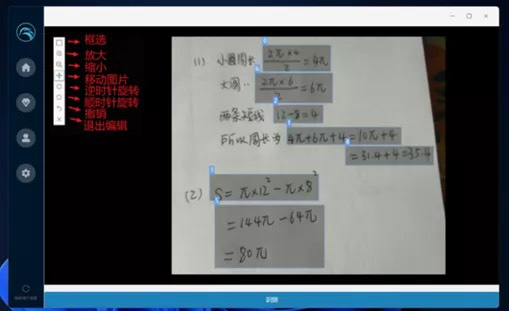 框选
放大
缩小
移动图片
逆时针旋转
顺时针旋转
撤销
退出编辑
(1) 小圆周长 2π×4/2 = 4π
大圆·· 2π×6/2 = 6π
两条短线 12-8=4
所以周长为 4π+6π+4=10π+4
=31.4+4=35.4
(2) S = π×12² - π×8²
= 144π - 64π
= 80π
识别